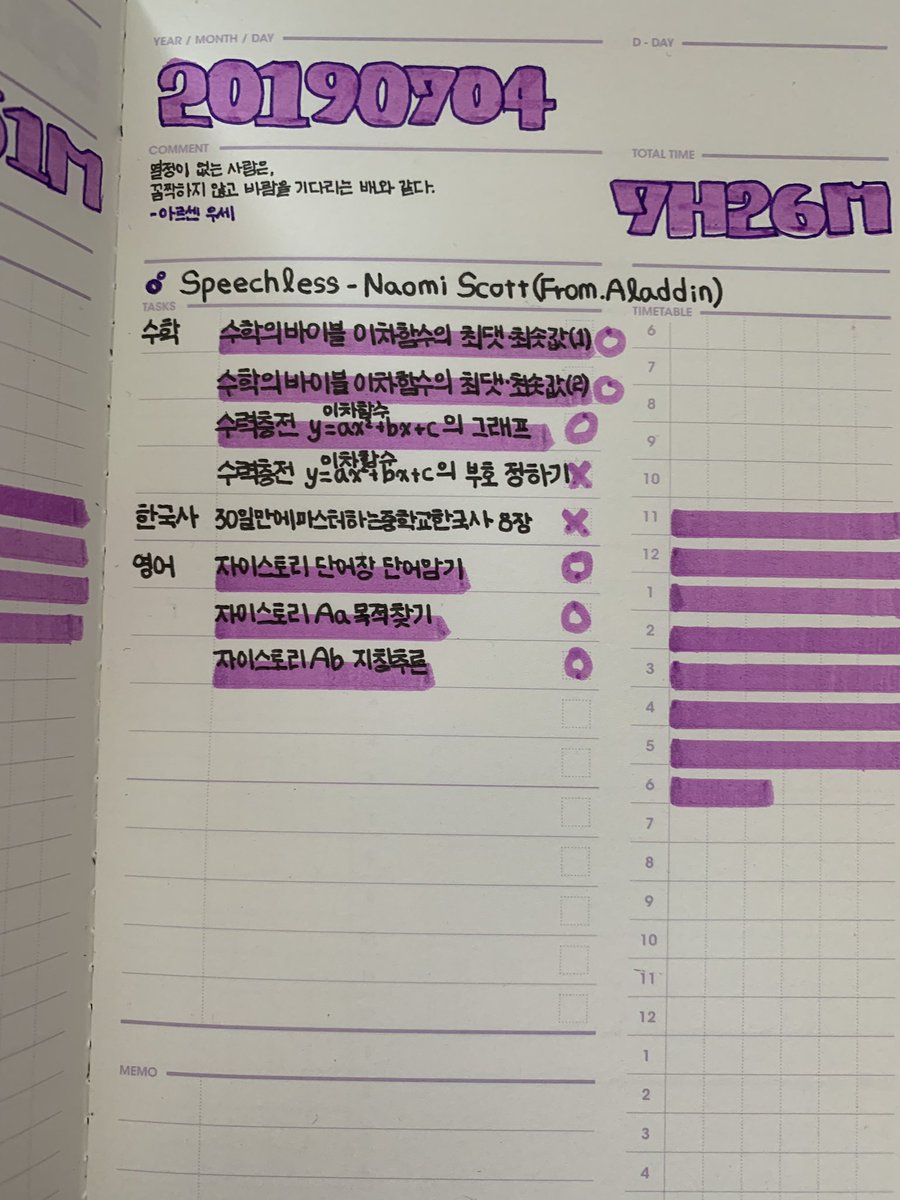 51M
YEAR / MONTH / DAY
D - DAY
20190704
COMMENT
열정이 없는 사람은,
꼼짝하지 않고 바람을 기다리는 배와 같다.
-아르센 우세
TOTAL TIME
7H26M
Speechless - Naomi Scott(From.Aladdin)
TASKS
수학 수학의바이블 이차함수의 최댓·최솟값(1)
수학의바이블 이차함수의 최댓·최솟값(2)
이차함수
수력충전 y=ax²+bx+c의 그래프
이차함수
수력충전 y=ax²+bx+c의 부호 정하기
한국사 30일만에마스터하는중학교한국사 8장
영어 자이스토리 단어장 단어암기
자이스토리 Aa 목적찾기
자이스토리 Ab 지칭추론
TIMETABLE
6
7
8
9
10
11
12
1
2
3
4
5
6
7
8
9
10
11
12
1
2
3
4
MEMO